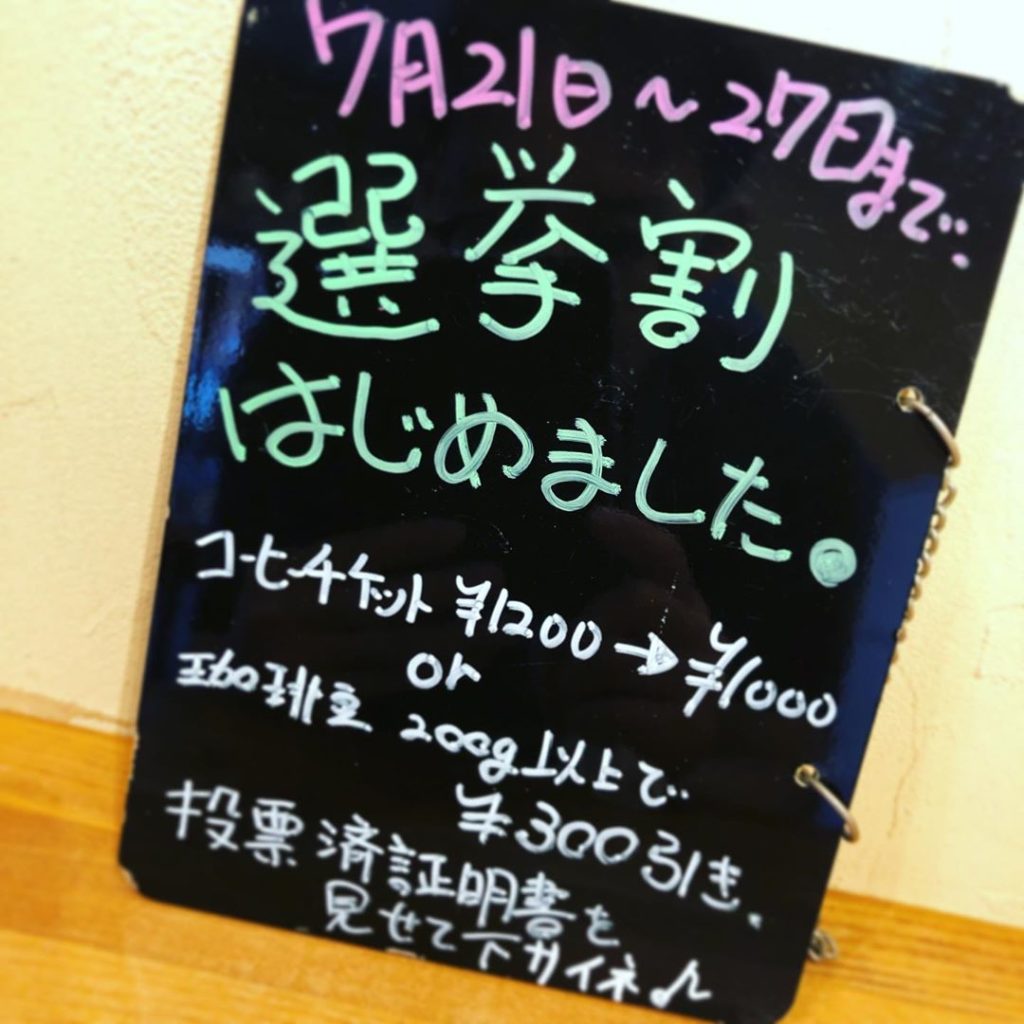 7月21日～27日まで.
選挙割
はじめました。
コーヒーチケット ¥1200→¥1000
or
珈琲豆 200g以上で
¥300引き.
投票済証明書を
見せて下サイネ♪